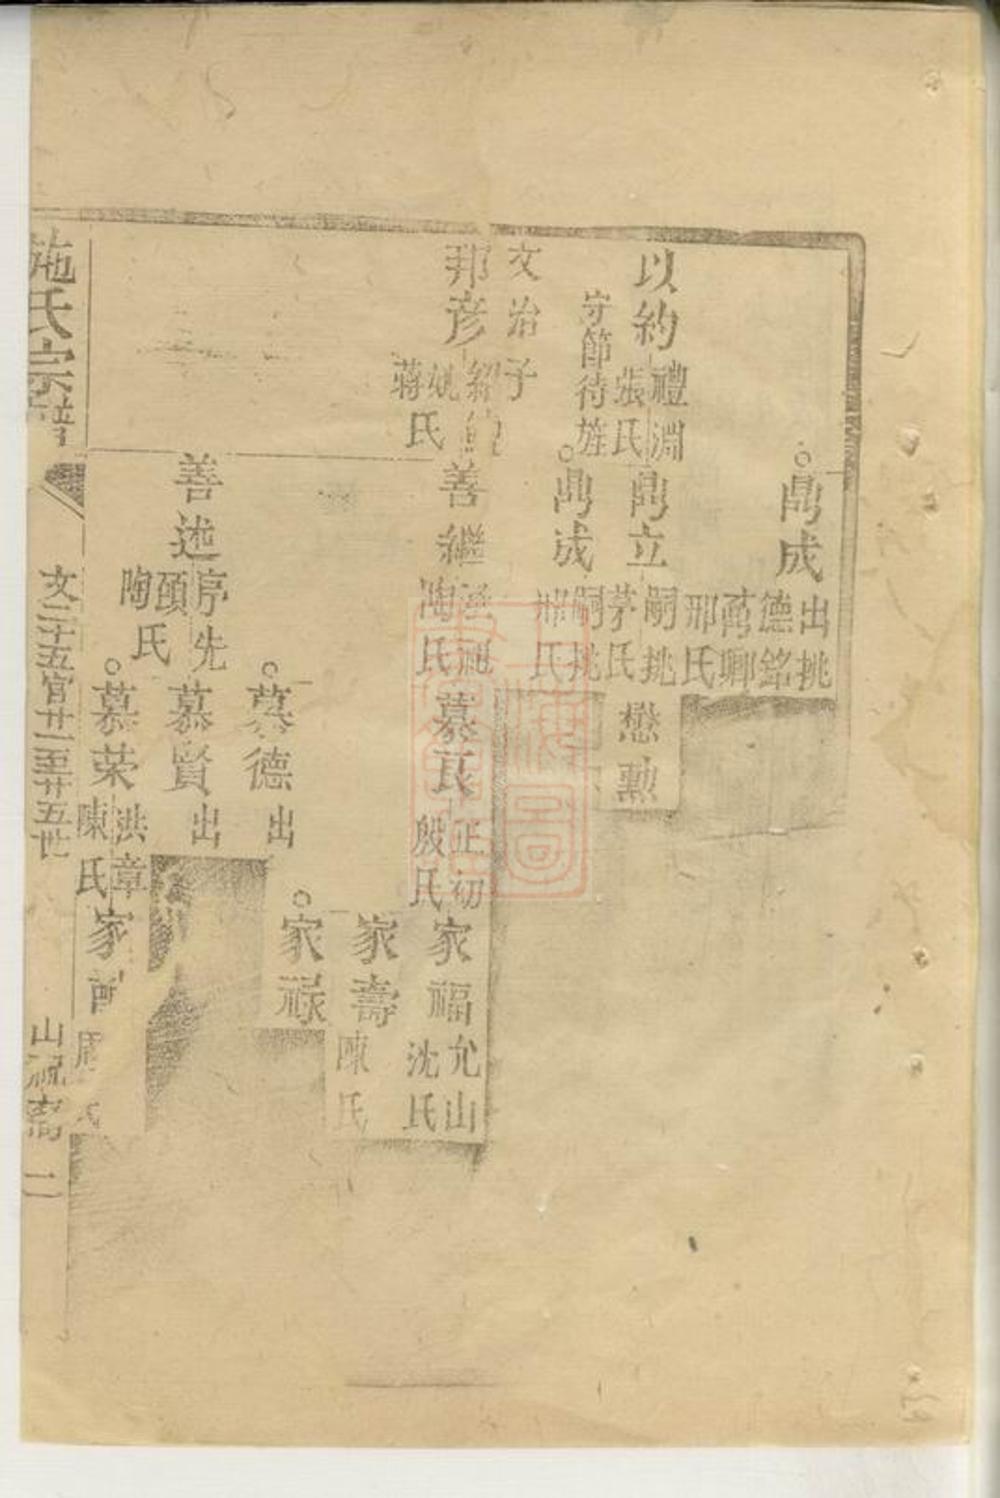 鼎成
出挑
德銘
萬卿
邢氏
以約
禮淵
張氏
守節待旌
鼎立
嗣挑
茅氏
鼎成
嗣挑
邢氏
懋勲
文治子
邦彦
姚
蔣氏
善繼
陶氏
慕良
正初
殷氏
家福
允山
沈氏
家壽
陳氏
家祿
善述
序先
頤
陶氏
慕德
出
慕賢
出
慕荣
洪章
陳氏
家
施氏宗譜
文二十五官廿一至廿五世
山
二